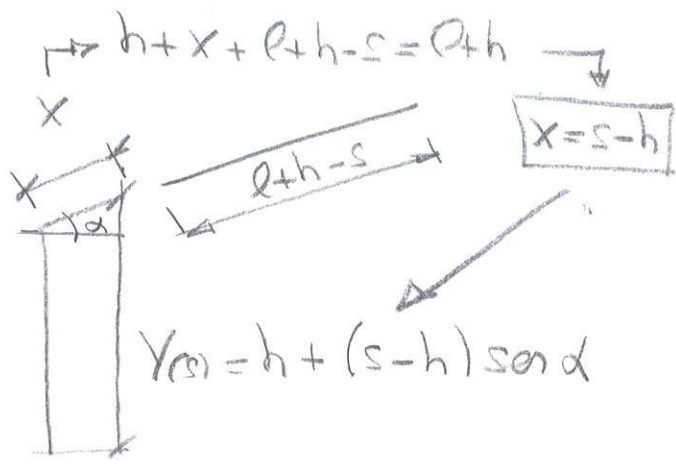 h + x + l + h - s = l + h
x
x = s - h
l + h - s
α
Y(s) = h + (s - h) sen α